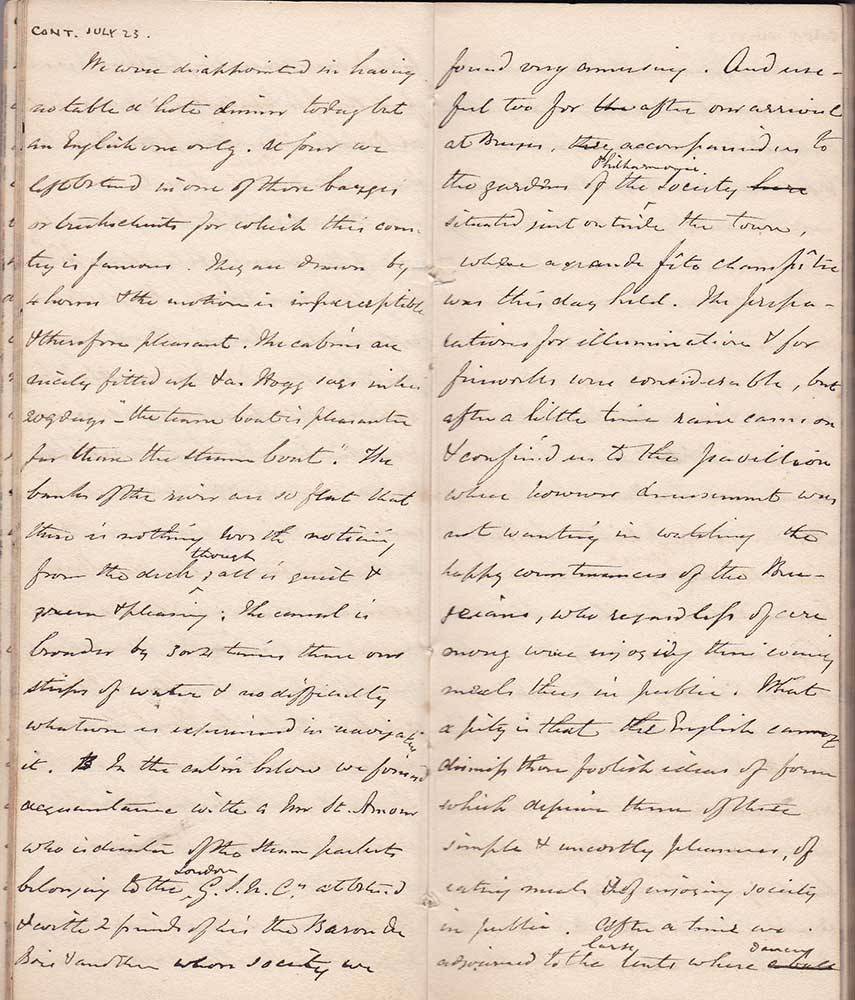 CONT. JULY 23.
We were disappointed in having
no table d'hote dinner today but
an English one only. At four we
left Ostend in one of those barges
or trekschuits for which this coun-
try is famous. They are drawn by
4 horses & the motion is imperceptible
& therefore pleasant. The cabins are
nicely fitted up & as Hogg says in his
"the team boat is pleasanter
far than the steam boat". The
banks of the river are so flat that
there is nothing worth noticing
from the deck, though all is quiet &
green & pleasing; The canal is
broader by 3 or 4 times than our
strips of water & no difficulty
whatever is experienced in navigating
it. In the cabin below we formed
acquaintance with a Mr St. Amour
who is director of the steam packets
belonging to the London G.S.N.Cy at Ostend
& with 2 friends of his the Baron de
Bois & another whose society we
found very amusing. And use-
ful too for the after our arrival
at Bruges, they accompanied us to
the gardens of the Philharmonic society here
situated just outside the town,
where a grande fête champêtre
was this day held. The prepa-
rations for illumination & for
fireworks were considerable, but
after a little time rain came on
& confined us to the pavillion
where however amusement was
not wanting in watching the
happy countenances of the Bru-
geians, who regardless of cere
mony were enjoying their evening
meals thus in public. What
a pity is that the English cannot
dismiss those foolish ideas of form
which deprive them of these
simple & uncostly pleasures, of
eating meals & of enjoying society
in public. After a time we
adjourned to the large tents where dancing a ball